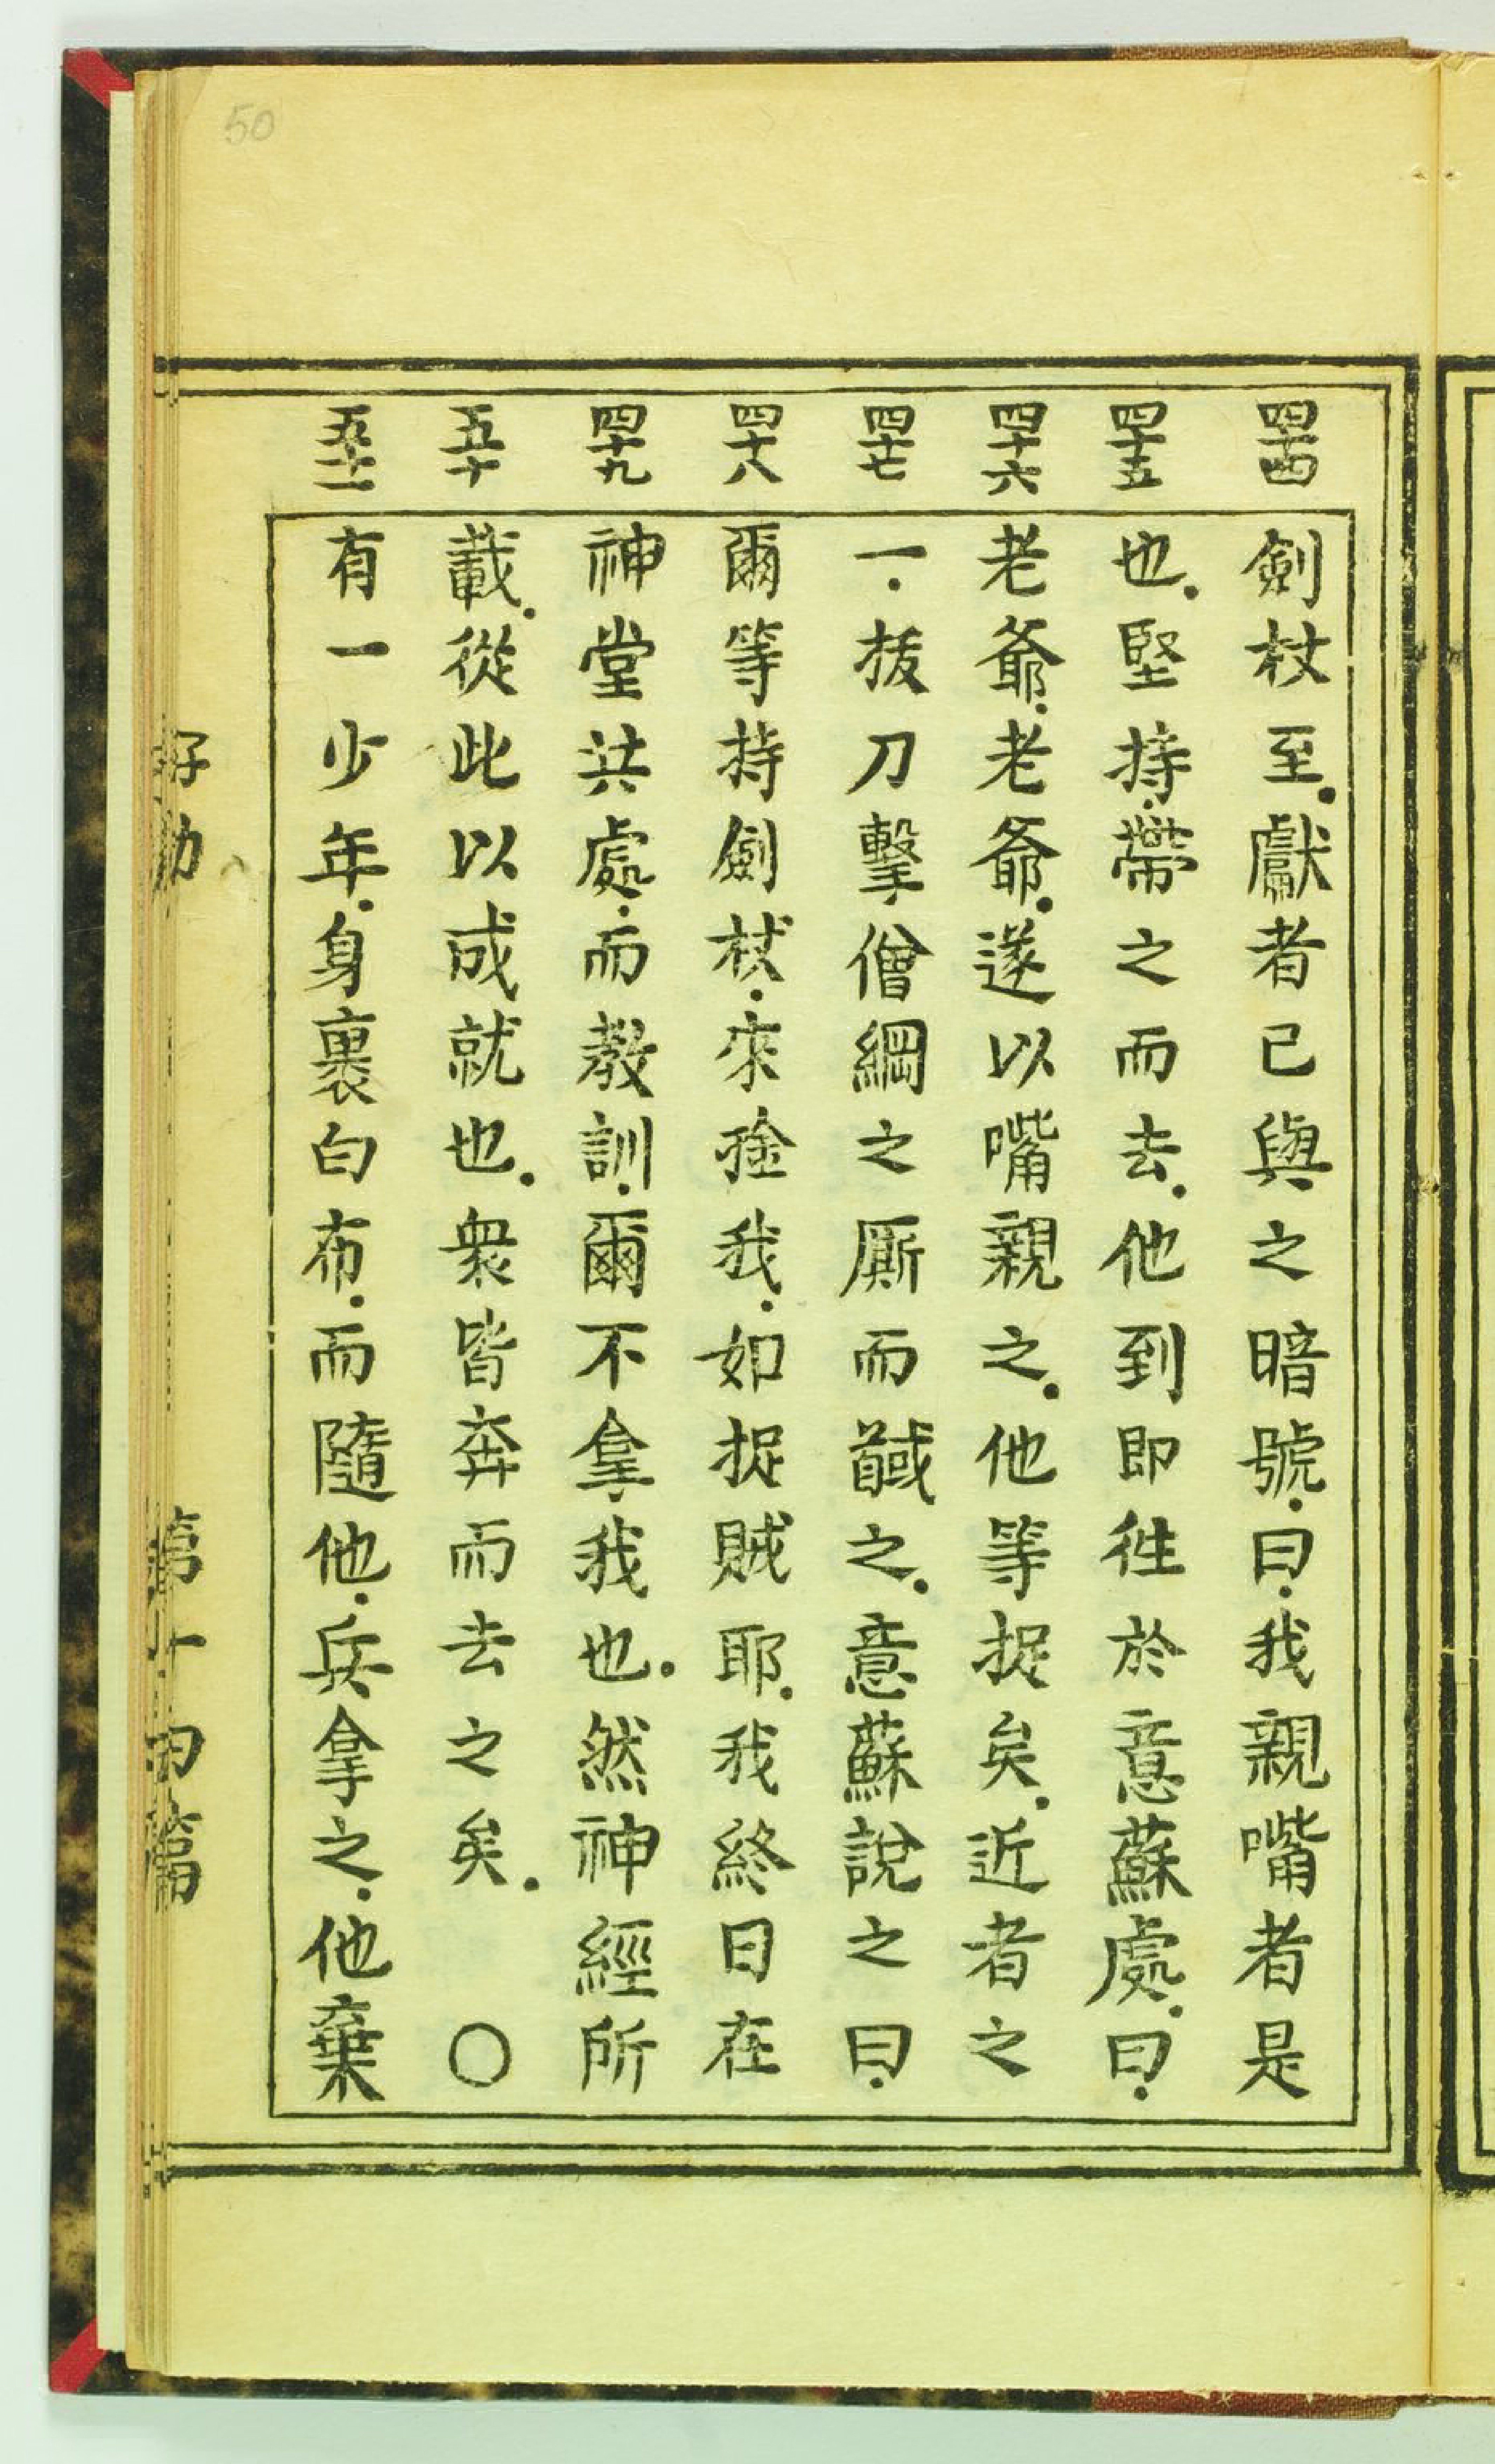 50
四十四 四十五 四十六 四十七 四十八 四十九 五十 五十一
劍杖至.獻者已與之暗號.曰.我親嘴者是
也.堅持.帶之而去.他到即徃於意蘇處.曰.
老爺.老爺.遂以嘴親之.他等捉矣.近者之
一.拔刀擊僧綱之厮而馘之.意蘇說之曰.
爾等持劍杖.來捦我.如捉賊耶.我終日在
神堂共處.而教訓.爾不拿我也.然神經所
載.從此以成就也.衆皆奔而去之矣.○
有一少年.身裹白布.而隨他.兵拿之.他棄
第十四篇